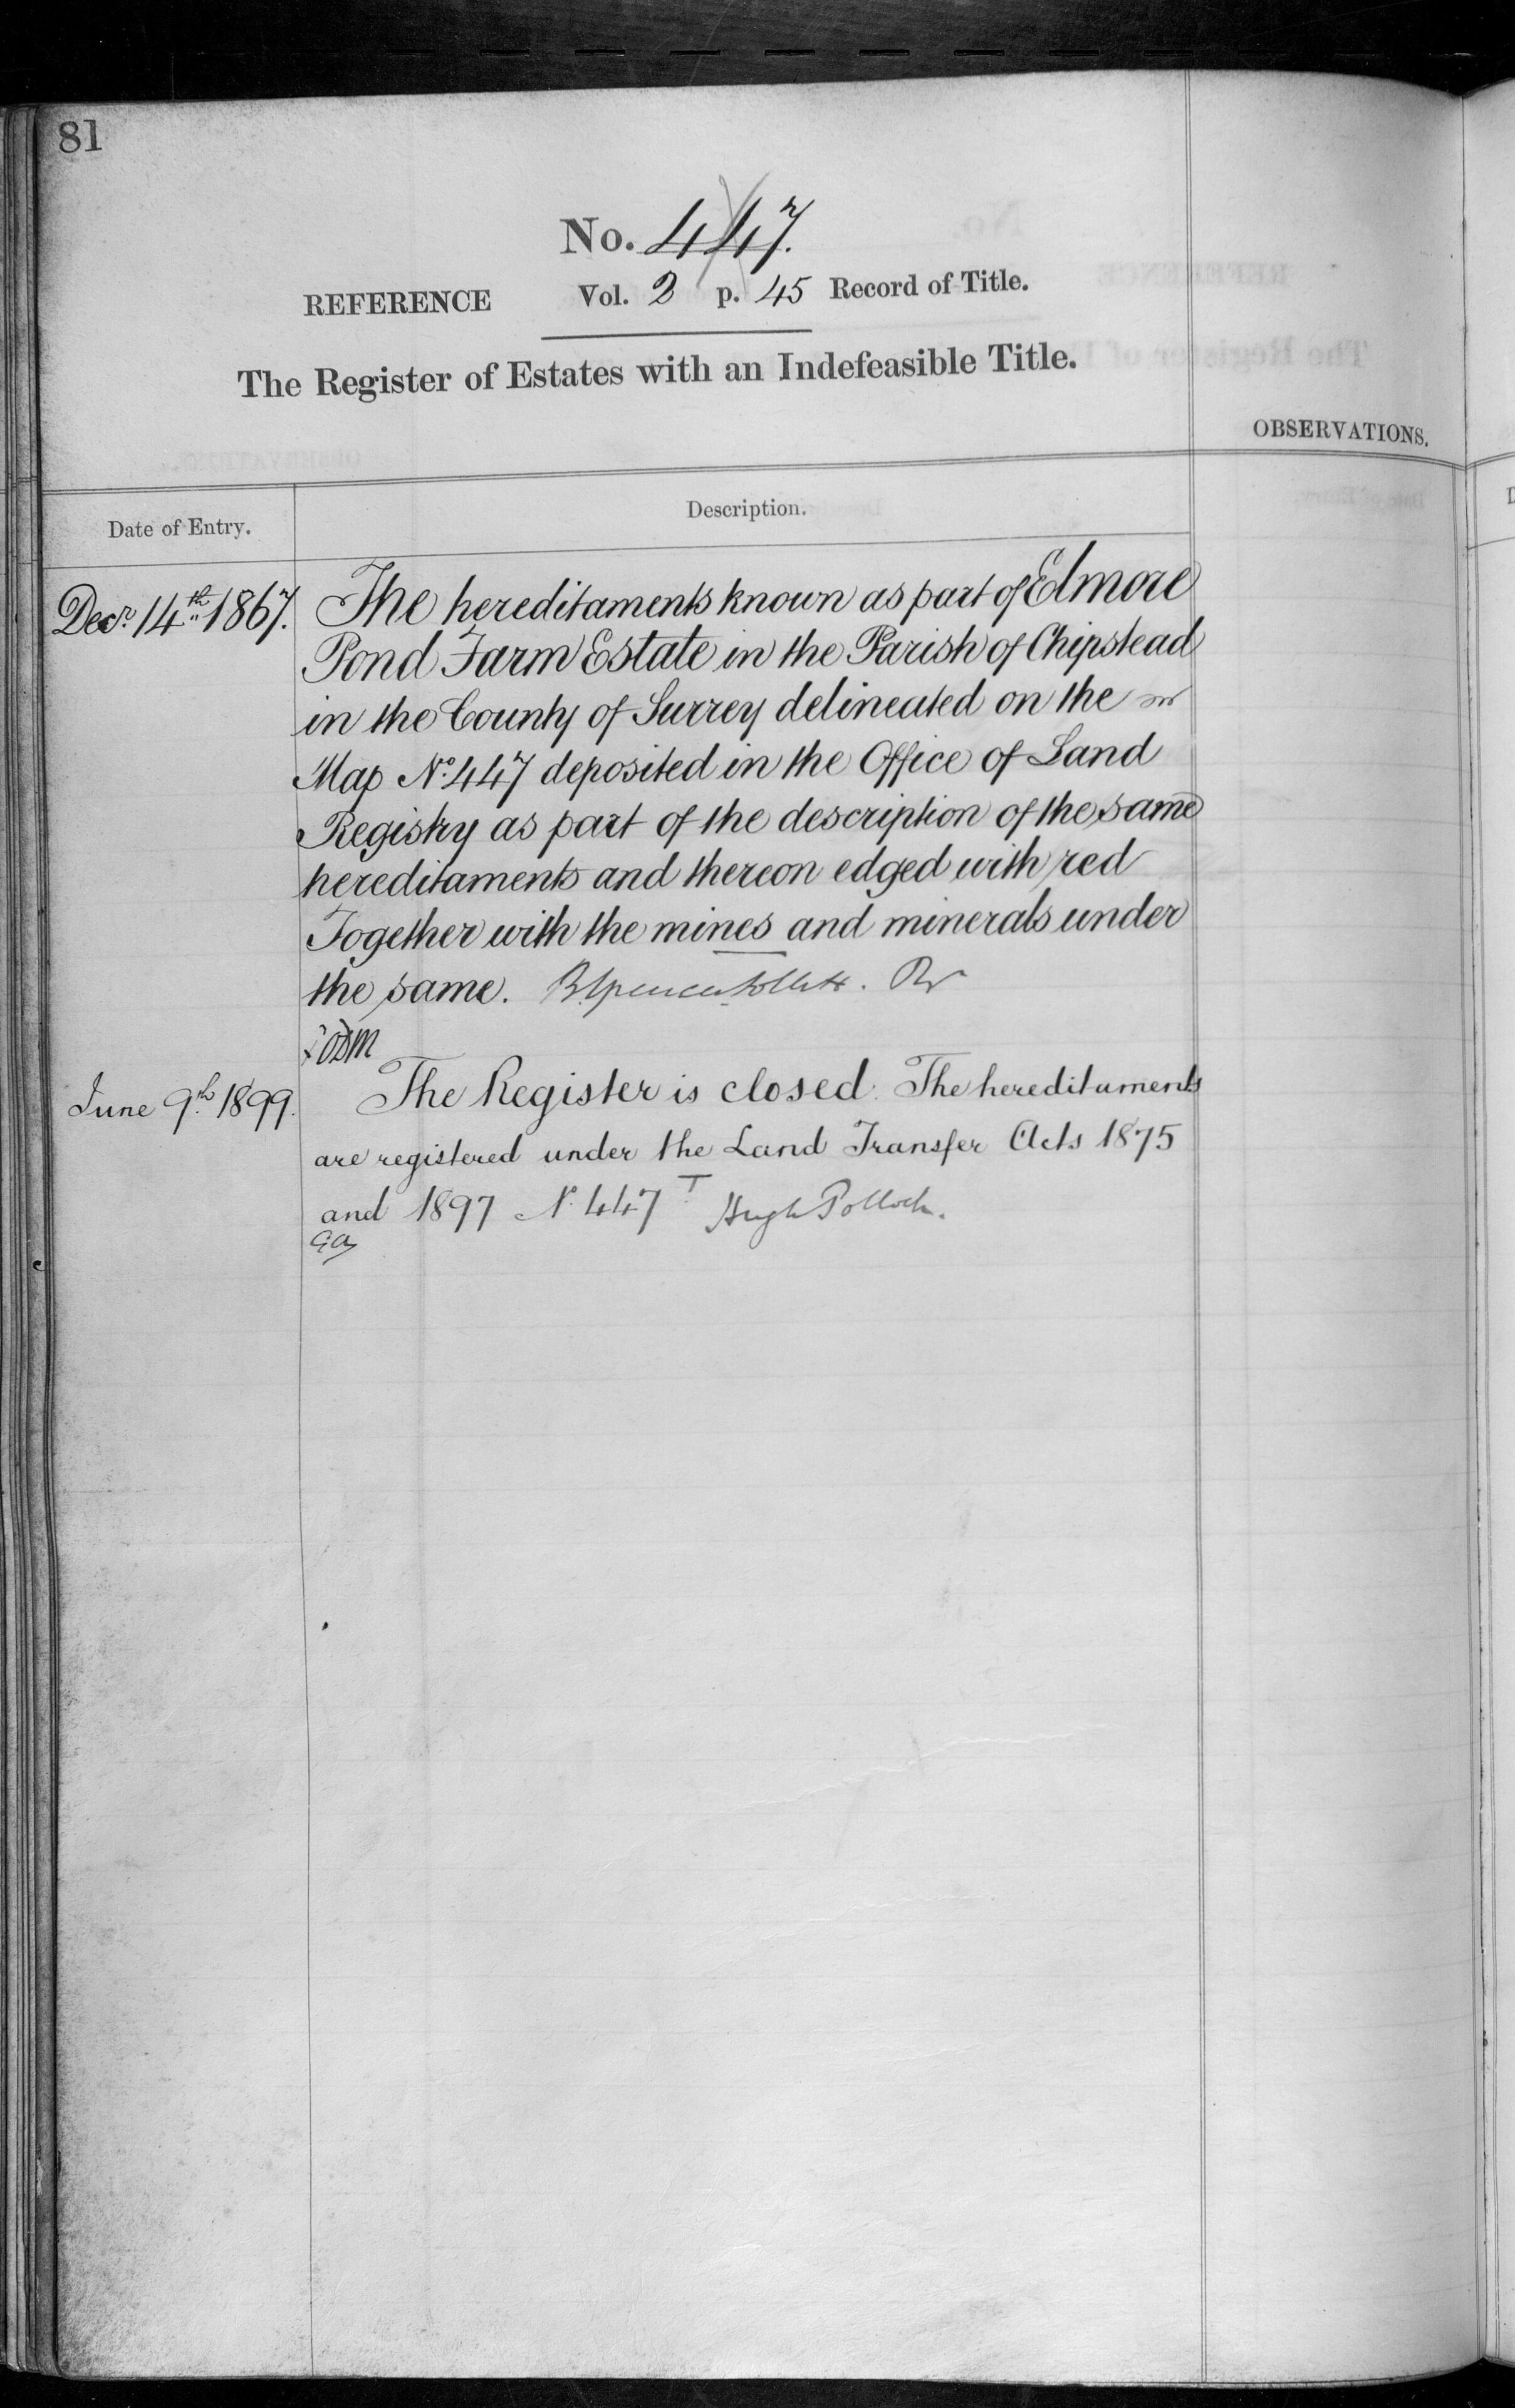 81
No. 447.
REFERENCE Vol. 2 p. 45 Record of Title.
The Register of Estates with an Indefeasible Title.
OBSERVATIONS.
Date of Entry.
Description.
Decr. 14th 1867. The hereditaments known as part of Elmore
Pond Farm Estate in the Parish of Chipstead
in the County of Surrey delineated on the
Map No. 447 deposited in the Office of Land
Registry as part of the description of the same
hereditaments and thereon edged with red
Together with the mines and minerals under
the same. B. Spencer Follett. Rr
June 9th 1899. The Register is closed. The hereditaments
are registered under the Land Transfer Acts 1875
and 1897 No. 447 T Hugh Pollock.